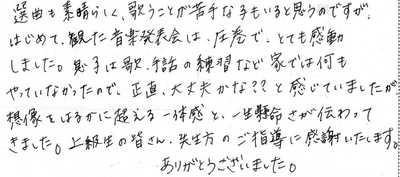 選曲も素晴らしく、歌うことが苦手な子もいると思うのですが、
はじめて、観た音楽発表会は、圧巻で、とても感動
しました。息子は歌、手話の練習など家では何も
やっていなかったので、正直、大丈夫かな??と感じていましたが
想像をはるかに超える一体感と、一生懸命さが伝わって
きました。上級生の皆さん、先生方のご指導に感謝いたします。
ありがとうございました。